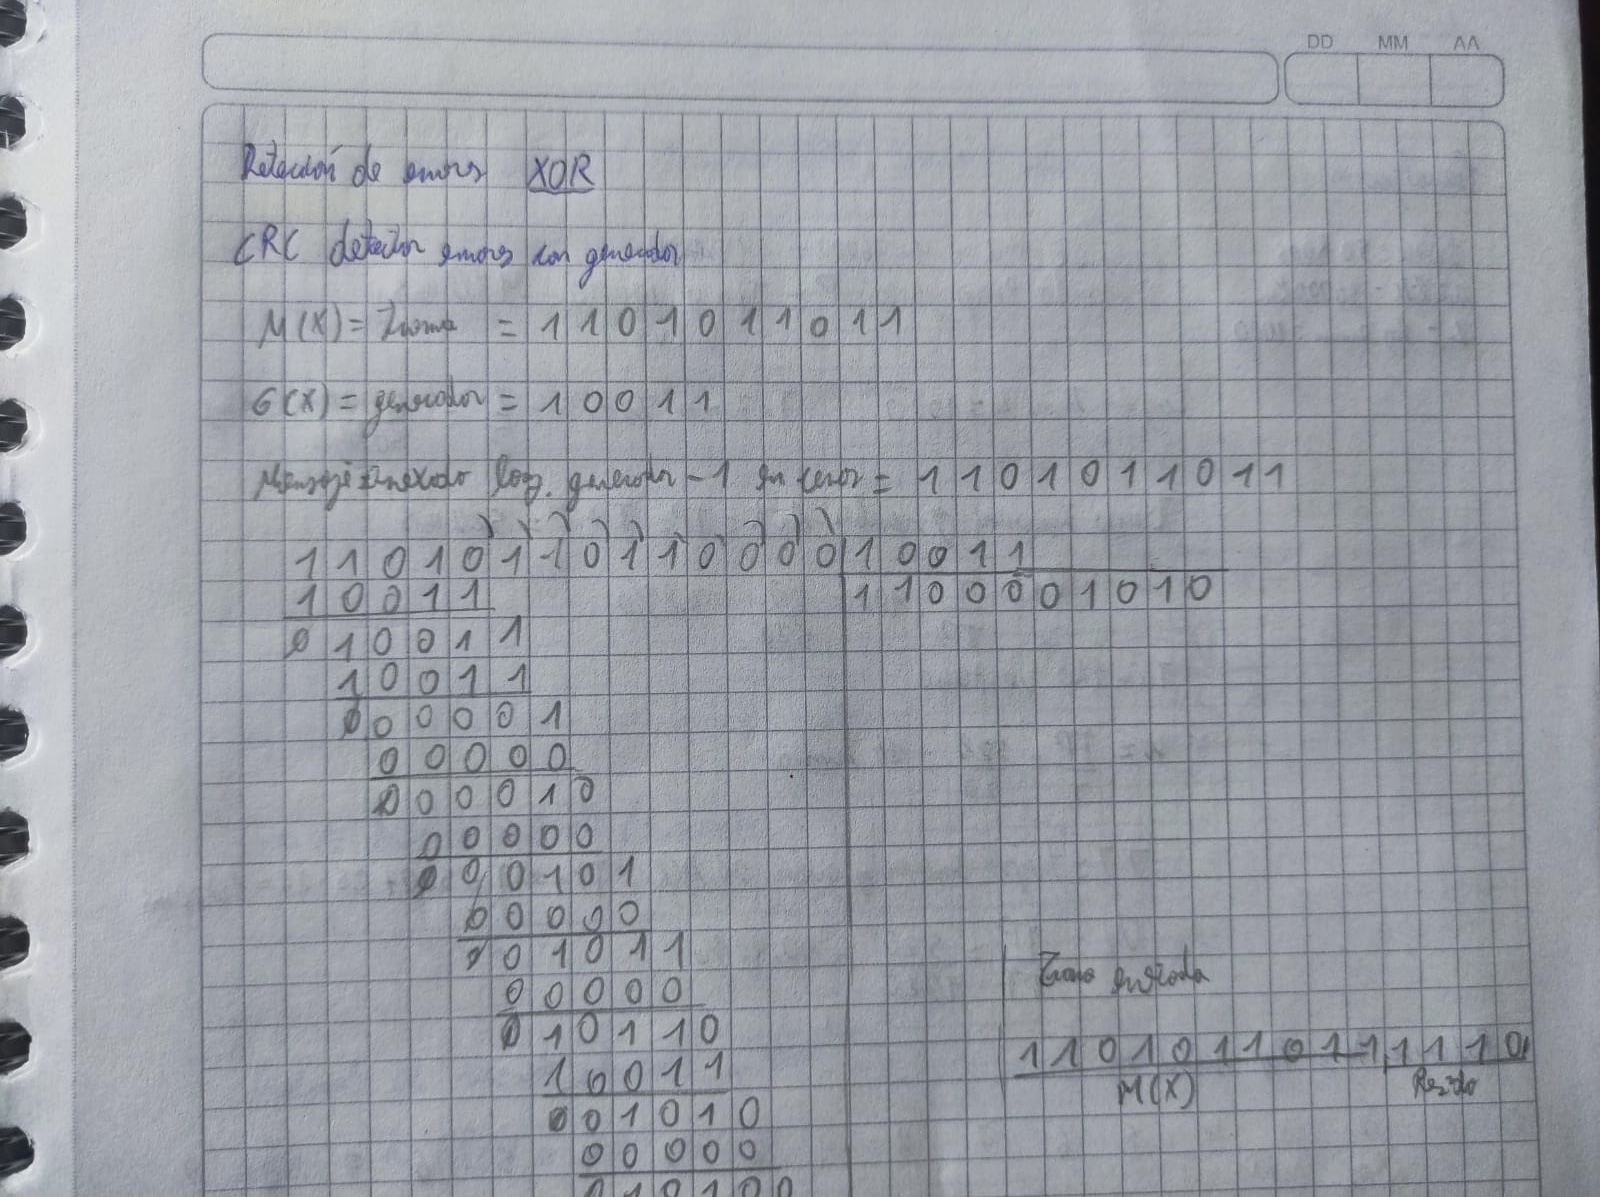 DD MM AA
Detección de errores XOR
CRC detectar errores con generador
M(X) = Trama = 1101011011
G(X) = generador = 10011
Mensaje anexado long. generador - 1 en ceros = 1101011011
11010110110000 10011
10011 1100001010
010011
10011
000001
00000
000010
00000
000101
00000
001011
00000
010110
10011
001010
00000
010100
Trama enviada
11010110111110
M(X) Residuo